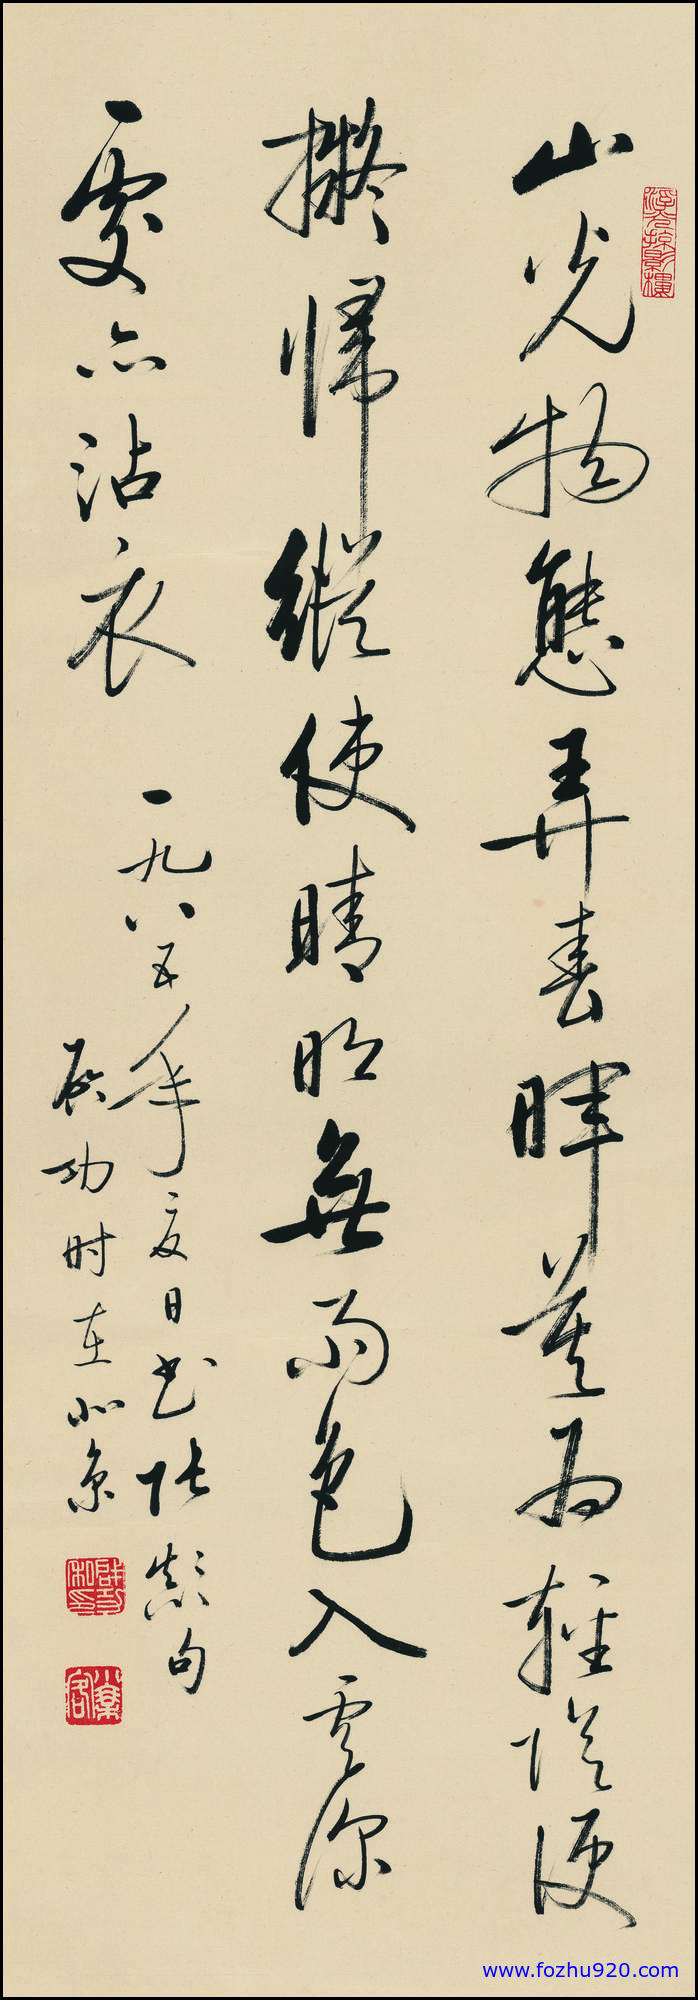 山光物態弄春暉莫为輕阴便
擬歸縱使晴明無雨色入雲深
處亦沾衣
一九八五年夏日书张颠句
启功时在北京
www.fozhu920.com